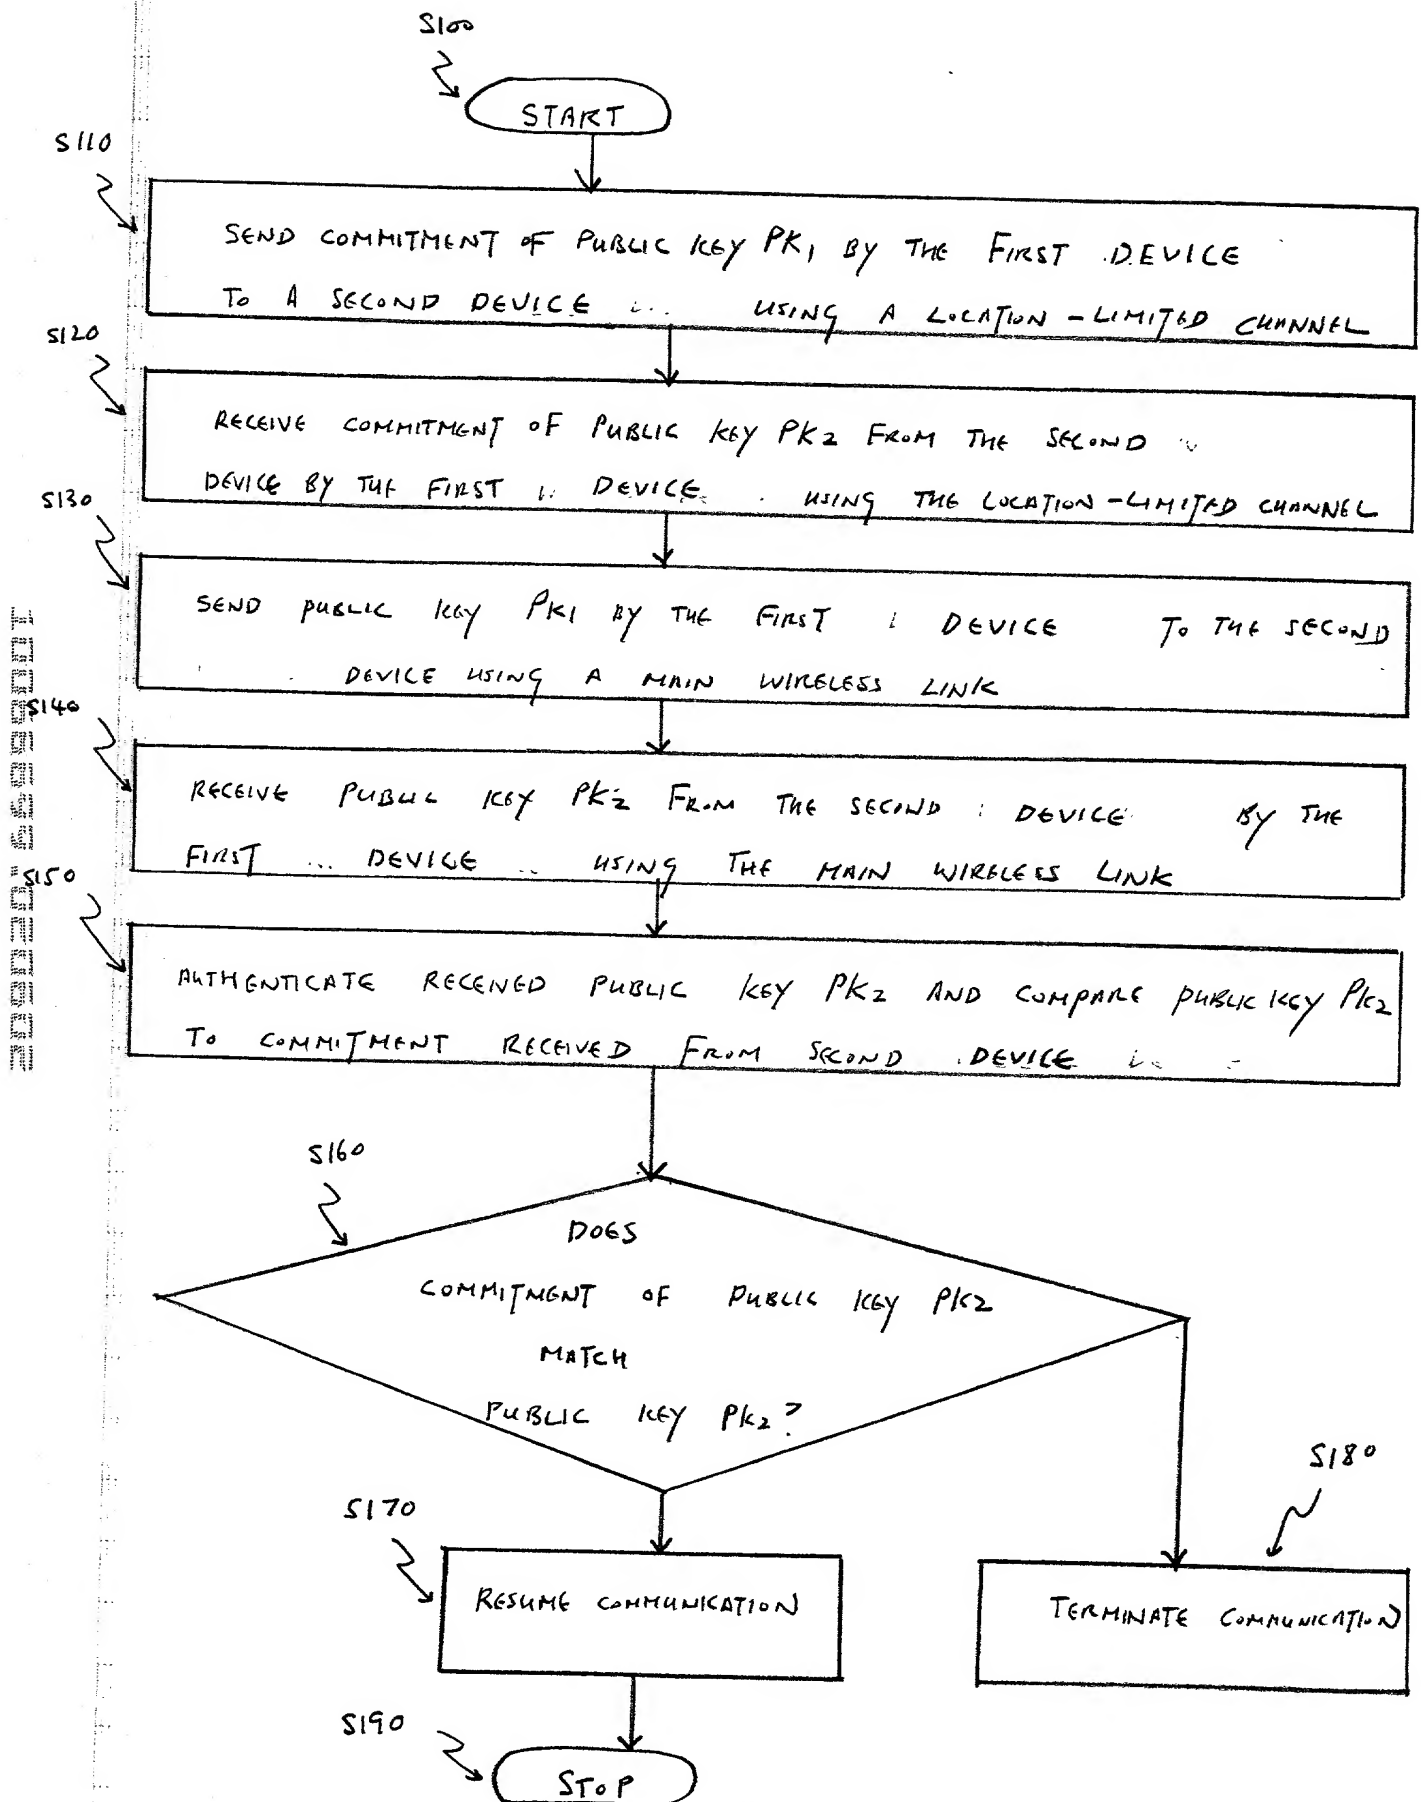 S100
START
S110
SEND COMMITMENT OF PUBLIC KEY PK1 BY THE FIRST DEVICE
TO A SECOND DEVICE USING A LOCATION-LIMITED CHANNEL
S120
RECEIVE COMMITMENT OF PUBLIC KEY PK2 FROM THE SECOND
DEVICE BY THE FIRST DEVICE USING THE LOCATION-LIMITED CHANNEL
S130
SEND PUBLIC KEY PK1 BY THE FIRST DEVICE TO THE SECOND
DEVICE USING A MAIN WIRELESS LINK
S140
RECEIVE PUBLIC KEY PK2 FROM THE SECOND DEVICE BY THE
FIRST DEVICE USING THE MAIN WIRELESS LINK
S150
AUTHENTICATE RECEIVED PUBLIC KEY PK2 AND COMPARE PUBLIC KEY PK2
TO COMMITMENT RECEIVED FROM SECOND DEVICE
S160
DOES
COMMITMENT OF PUBLIC KEY PK2
MATCH
PUBLIC KEY PK2?
S170
RESUME COMMUNICATION
S180
TERMINATE COMMUNICATION
S190
STOP